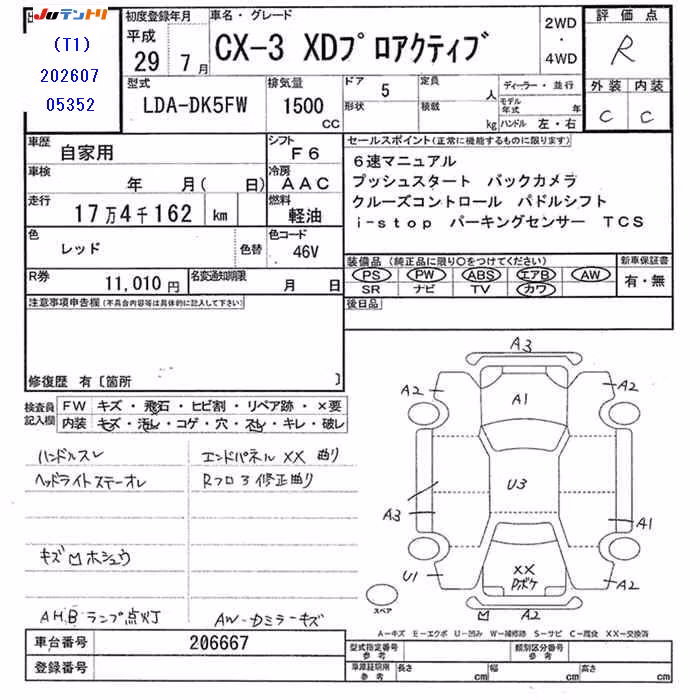 JUテントリ
(T1)
202607
05352
初度登録年月
平成
29 7月
車名・グレード
CX-3 XDプロアクティブ
2WD
・
4WD
評価点
R
外装 内装
C C
型式
LDA-DK5FW
排気量
1500
CC
ドア 5
形状
定員 人
積載 kg
ディーラー・並行
モデル年式 年
ハンドル 左・右
車歴
自家用
シフト
F6
車検
年 月( 日)
冷房
AAC
走行
17万4千162 km
燃料
軽油
色
レッド
色替
色コード
46V
R券
11,010円
名変通知期限
月 日
セールスポイント(正常に機能するものに限ります)
6速マニュアル
プッシュスタート バックカメラ
クルーズコントロール パドルシフト
i-stop パーキングセンサー TCS
装備品(純正品に限り○をつけてください)
新車保証書
PS PW ABS エアB AW
SR ナビ TV カワ
有・無
後日品
注意事項申告欄(不具合内容等は具体的に記入して下さい)
修復歴 有〔箇所 〕
検査員記入欄
FW キズ・飛石・ヒビ割・リペア跡・×要
内装 キズ・汚れ・コゲ・穴・スレ・キレ・破レ
ハンドルスレ
エンドパネル XX 曲り
ヘッドライトステーオレ
Rフロア修正曲り
キズ ホシュウ
AHBランプ点灯
AW-カミラーキズ
A3
A2
A1
A2
U3
A3
A1
U1
XX
Pボケ
A2
A2
スペア
A-キズ E-エクボ U-凹み W-補修跡 S-サビ C-腐食 XX-交換済
車台番号
206667
登録番号
型式指定番号
参考
類別区分番号
参考
車庫証明用
参考
長さ cm
幅 cm
高さ cm